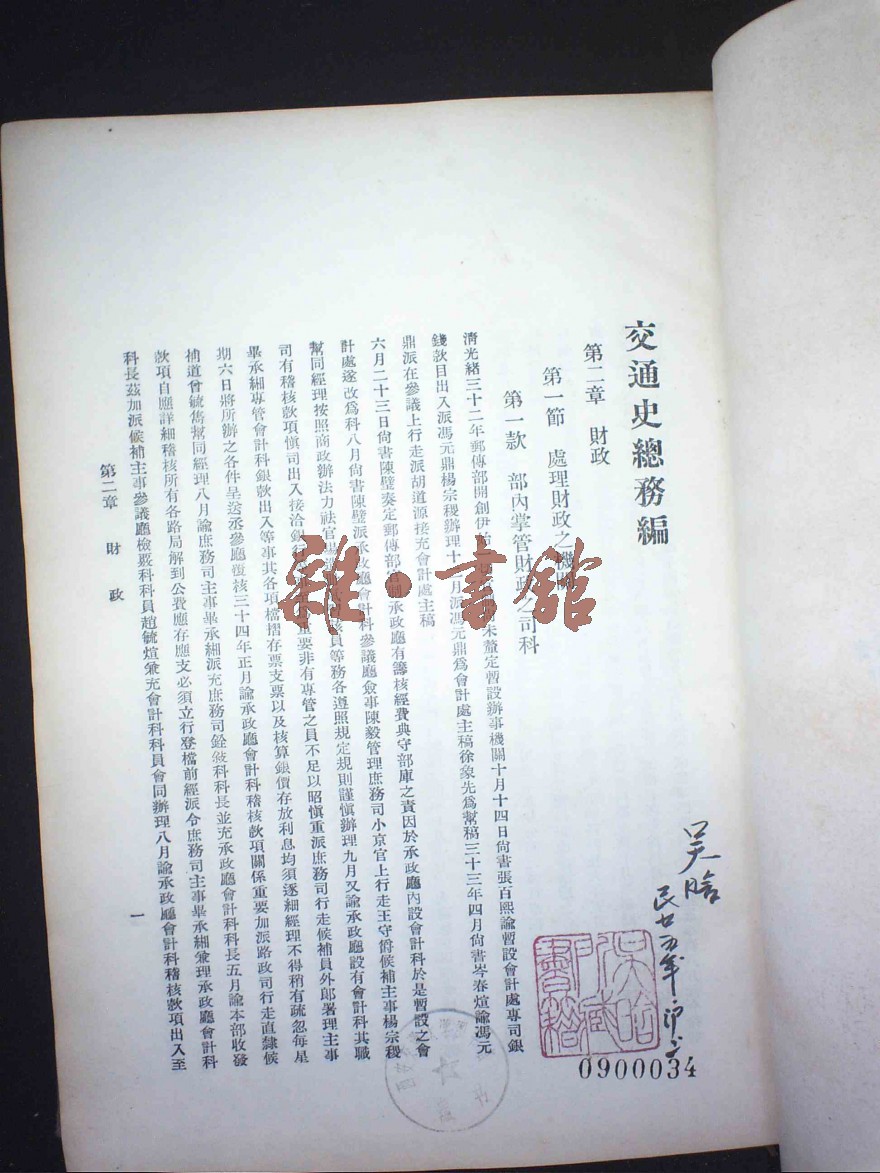 交通史總務編
第二章 財政
第一節 處理財政之機
第一款 部內掌管財政之司科
清光緒三十二年郵傳部開創伊始 未釐定暫設辦事機關十月十四日尙書張百熙諭暫設會計處專司銀
錢款目出入派馮元鼎楊宗稷辦理十二月派馮元鼎爲會計處主稿徐象先爲幫稿三十三年四月尙書岑春煊諭馮元
鼎派在參議上行走派胡道源接充會計處主稿
六月二十三日尙書陳璧奏定郵傳部官制承政廳有籌核經費典守部庫之責因於承政廳內設會計科於是暫設之會
計處遂改爲科八月尙書陳璧派承政廳會計科參議廳僉事陳毅管理庶務司小京官上行走王守爵候補主事楊宗稷
幫同經理按照商政辦法力祛官 核員等務各遵照規定規則謹愼辦理九月又諭承政廳設有會計科其職
司有稽核款項愼司出入接洽銀行 重要非有專管之員不足以昭愼重派庶務司行走候補員外郎署理主事
畢承緗專管會計科銀款出入等事其各項檔摺存票支票以及核算銀價存放利息均須逐細經理不得稍有疏忽每星
期六日將所辦之各件呈送丞參廳覆核三十四年正月諭承政廳會計科稽核款項關係重要加派路政司行走直隸候
補道曾毓雋幫同經理八月諭庶務司主事畢承緗派充庶務司銓敍科科長並充承政廳會計科科長五月諭本部收發
款項自應詳細稽核所有各路局解到公費應存應支必須立行登檔前經派令庶務司主事畢承緗兼理承政廳會計科
科長茲加派候補主事參議廳檢覈科科員趙毓煊兼充會計科科員會同辦理八月諭承政廳會計科稽核款項出入至
第二章 財政
一
雜·書舘
吳晗
民廿五年
吳晗所藏書籍
0900034